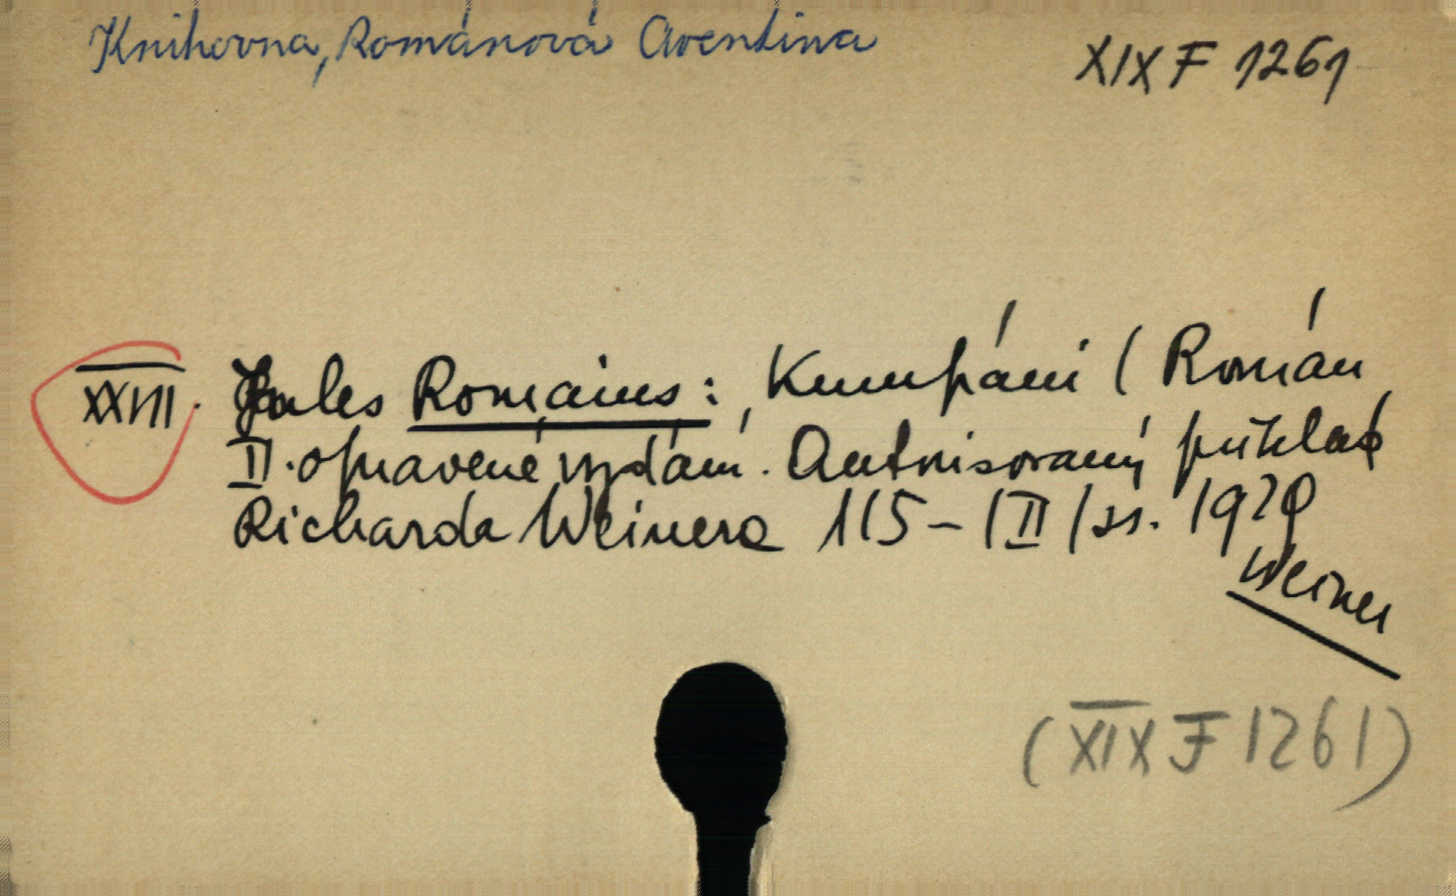 Knihovna, Románová Aventina
XIX F 1261
XXVII. Jules Romains: Kumpáni (Román
II. opravené vydání. Autorisovaný překlad
Richarda Weinera 115 – /II/ ss. 1929
Weiner
(XIX F 1261)